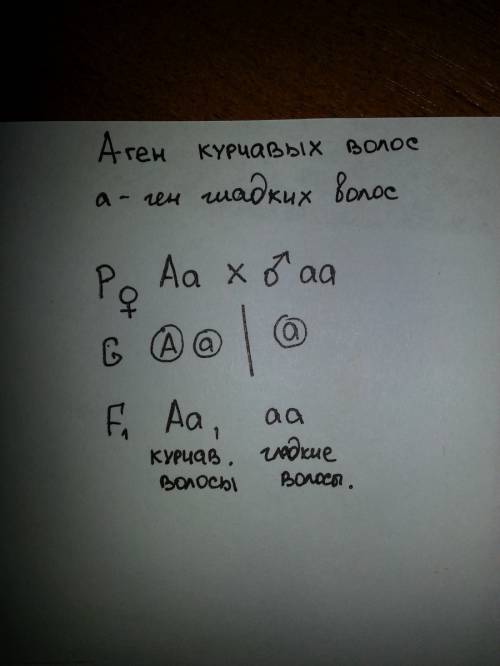 А-ген курчавых волос
а - ген гладких волос
P ♀ Aa x ♂ aa
G A a | a
F1 Aa, aa
курчав. гладкие
волосы волосы.